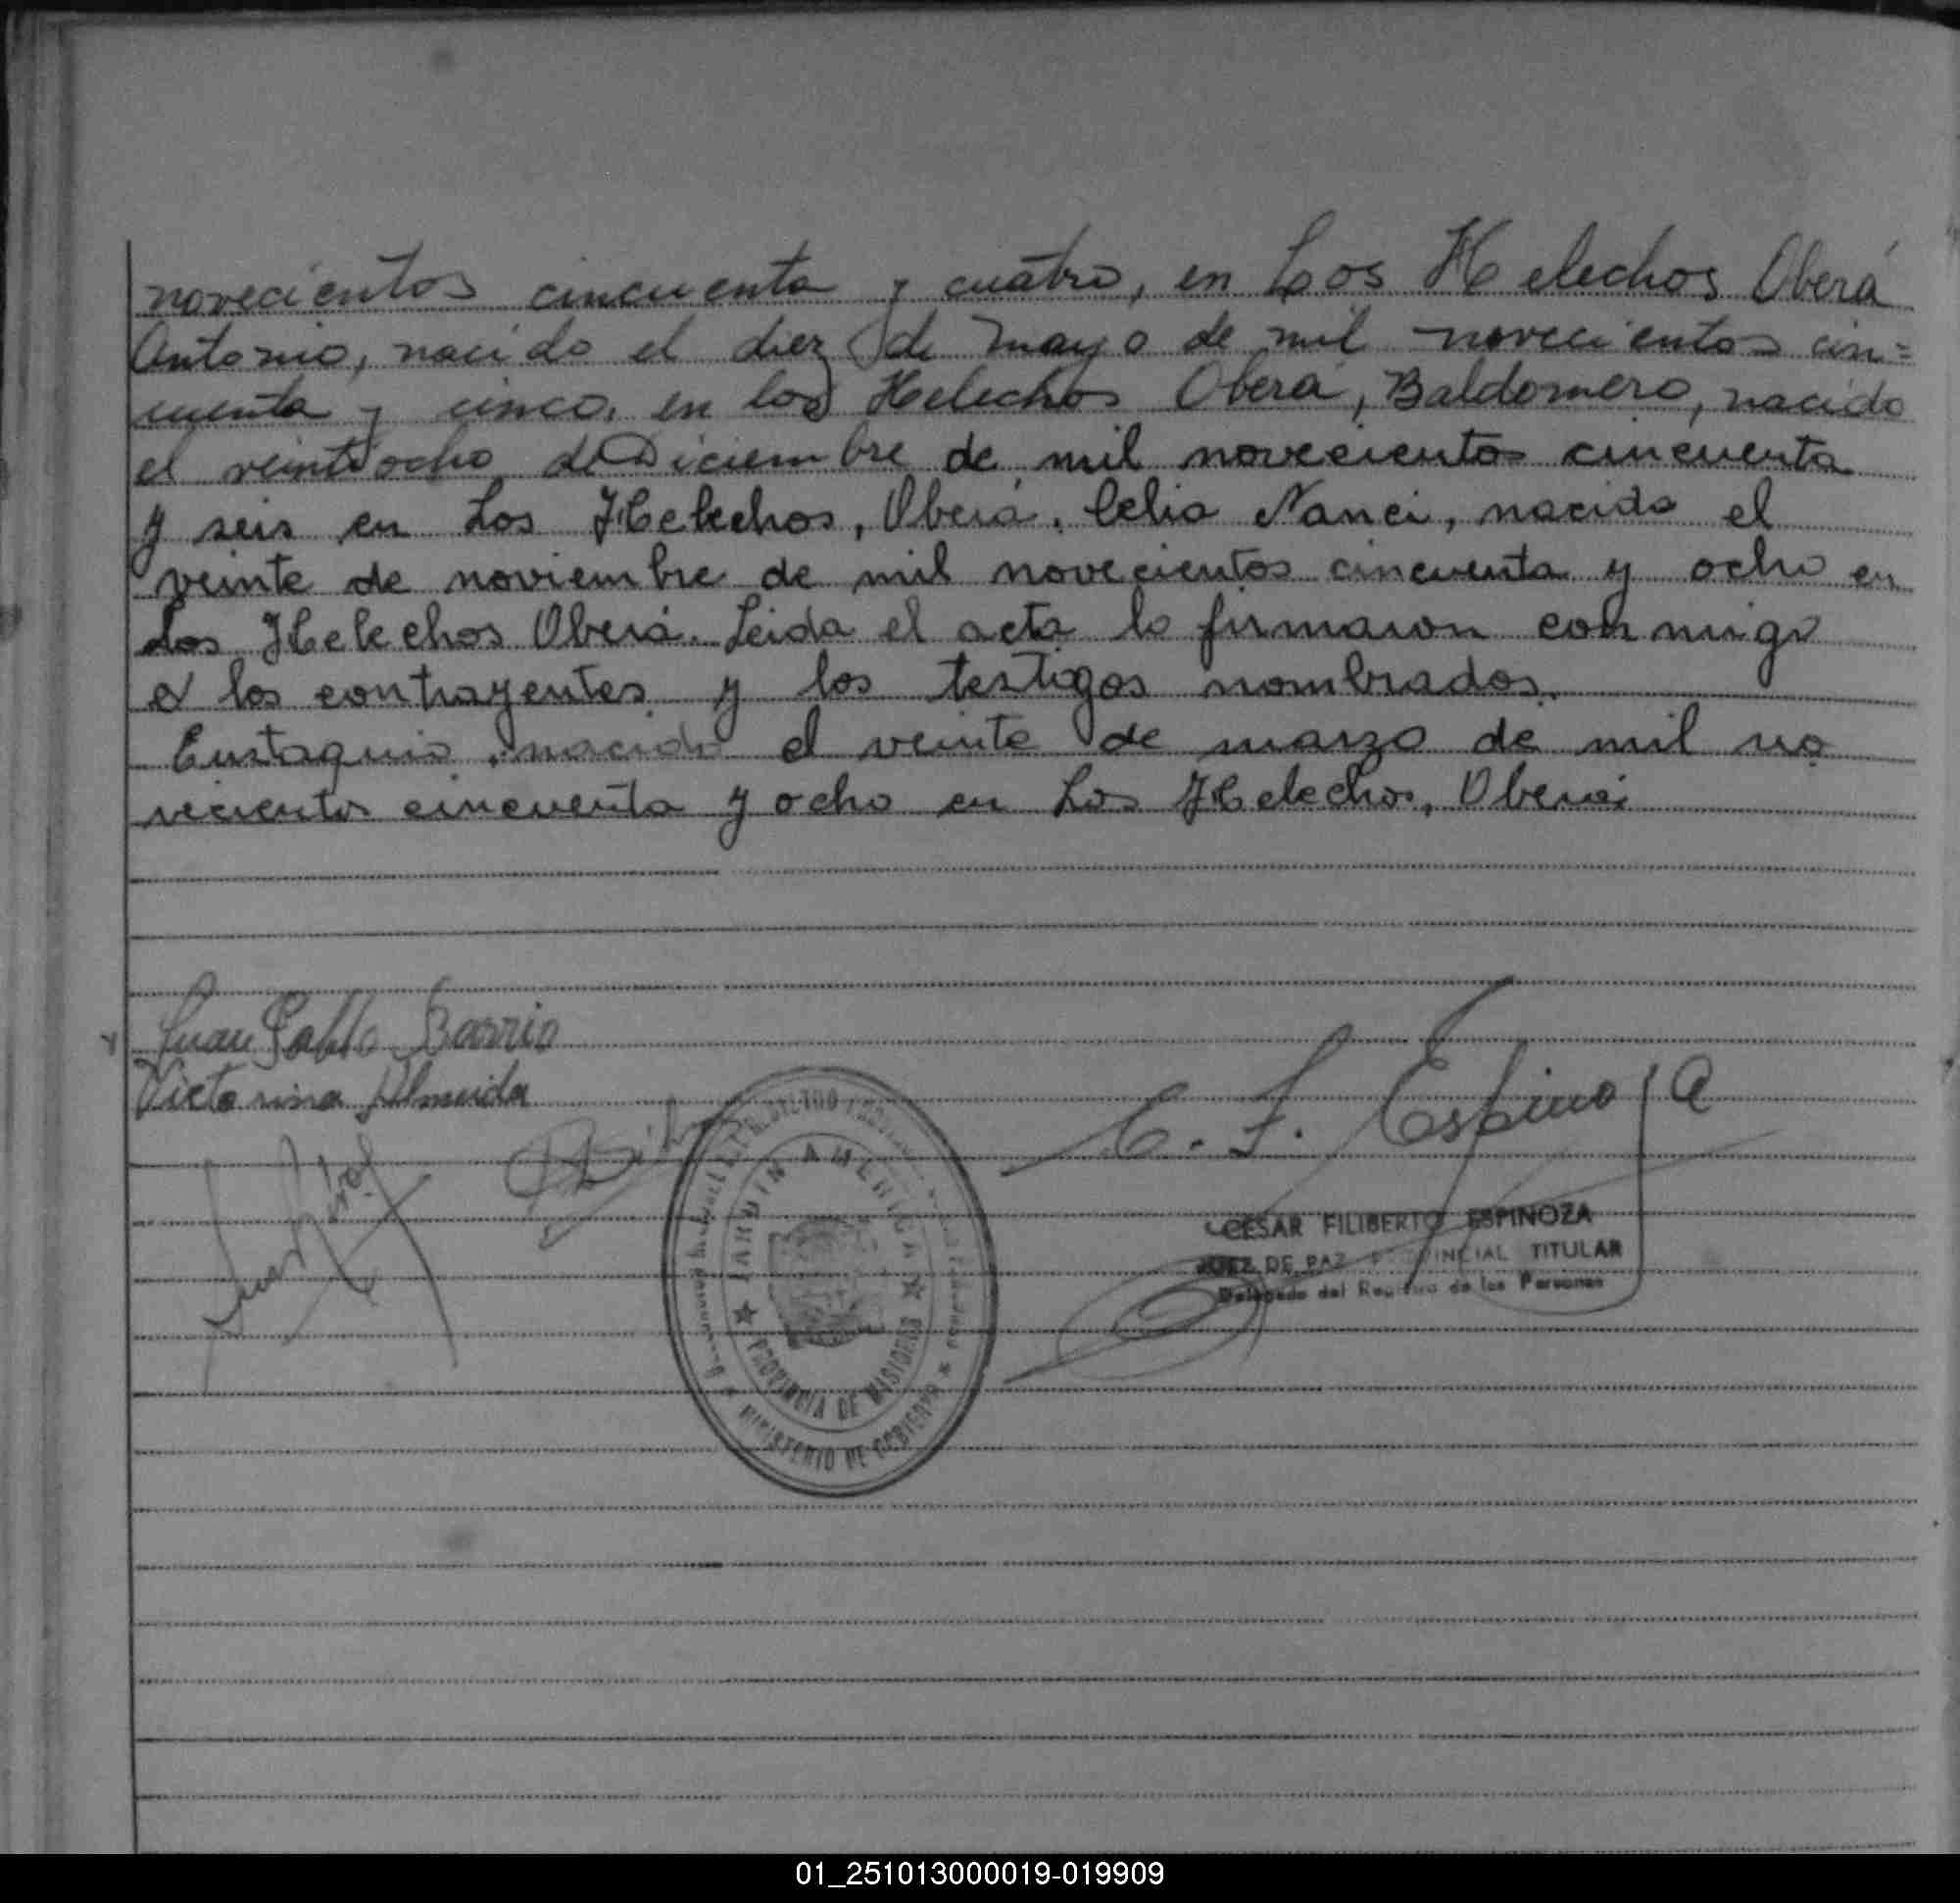 novecientos cincuenta y cuatro, en Los Helechos Oberá
Antonio, nacido el diez de mayo de mil novecientos cin=
cuenta y cinco, en los Helechos Oberá, Baldomero, nacido
el veintiocho de Diciembre de mil novecientos cincuenta
y seis en Los Helechos, Oberá, Celia Nanci, nacida el
veinte de noviembre de mil novecientos cincuenta y ocho en
Los Helechos Oberá. Leida el acta la firmaron conmigo
los contrayentes y los testigos nombrados.
Eustaquio, nacido el veinte de marzo de mil no
vecientos cincuenta y ocho en Los Helechos, Oberá
Juan Pablo Barrio
Victorina Almeida
C. F. Espinoza
JARDIN AMERICA
PROVINCIA DE MISIONES
MINISTERIO DE GOBIERNO
CESAR FILIBERTO ESPINOZA
JUEZ DE PAZ PROVINCIAL TITULAR
Delegado del Registro de las Personas
01_251013000019-019909